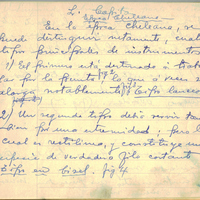 L. Capít
Epoca Chileana
En la época chileana, se
puede distinguir netamente, cuat
tipos principales de instrumentos
1) El primero está destinado a trab
jar por la punta, lo que a veces s
alarga notablemente, Tipo lanceo
2) Un segundo tipo debió servir tam
bien por una extremidad; pero la
cual es rectilínea, y constituye un
especie de verdadero filo cortante
Tipo en fig 4